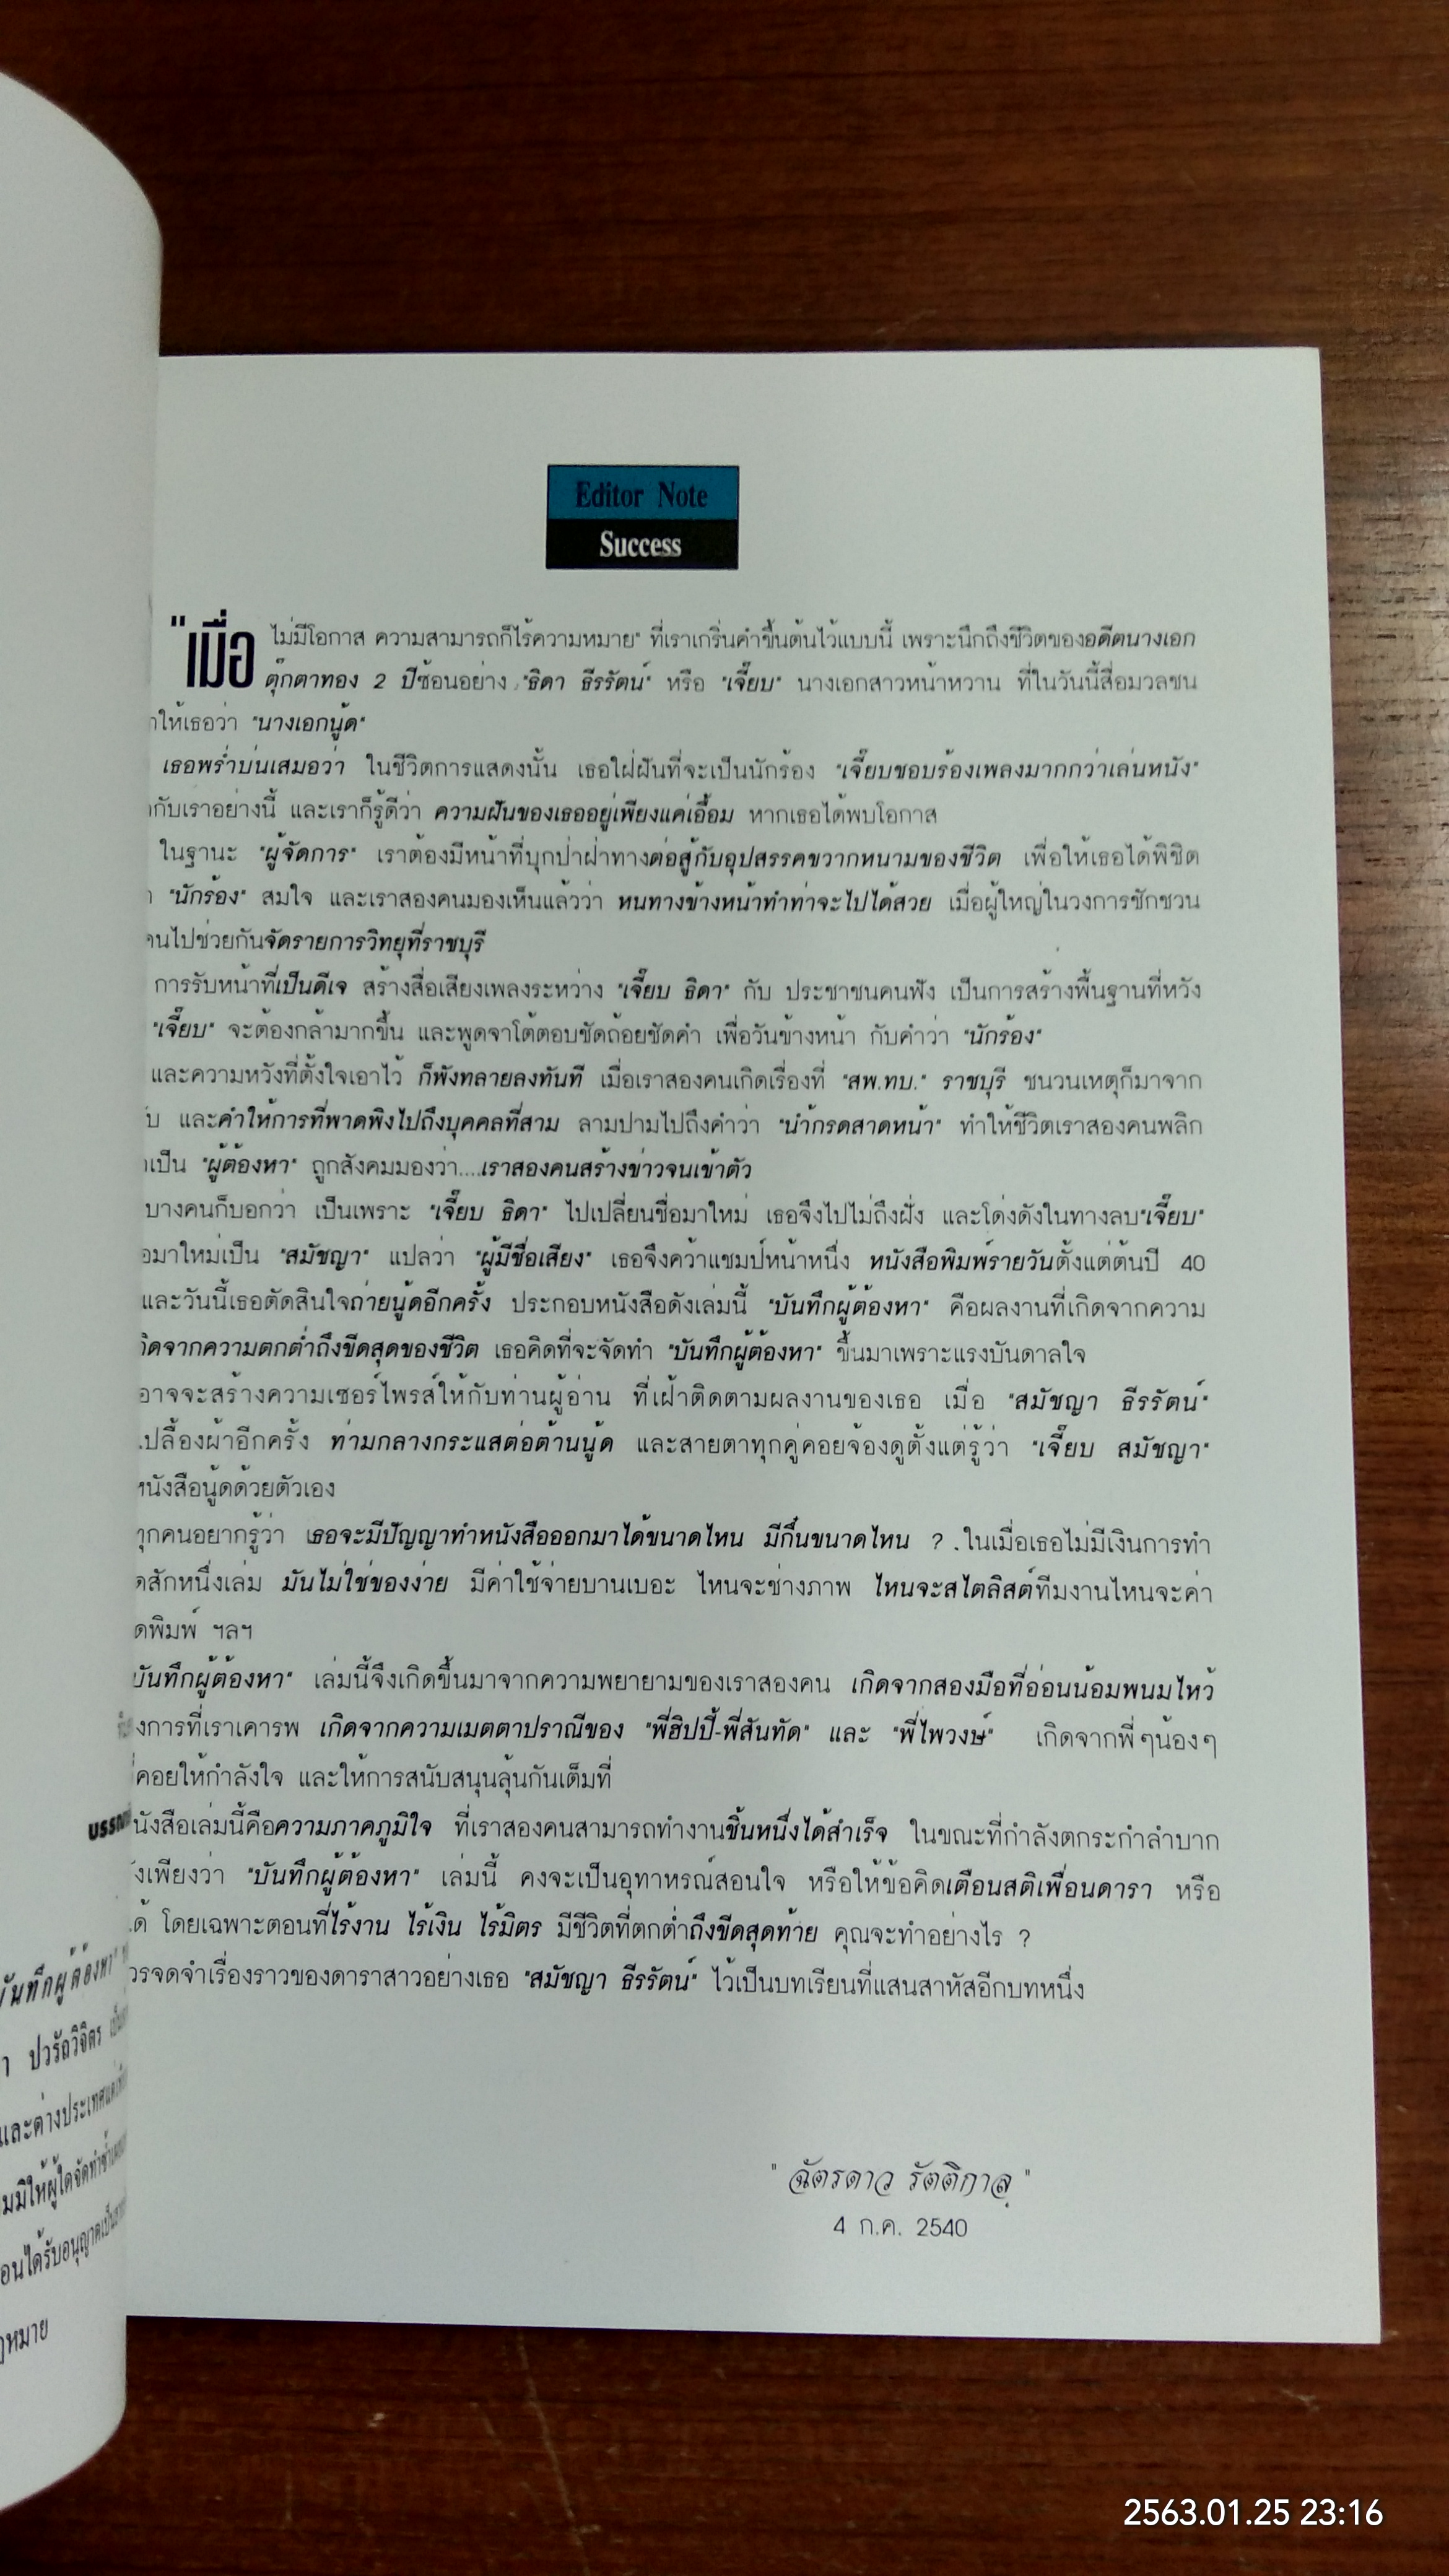 Editor Note
Success
"เมื่อ ไม่มีโอกาส ความสามารถก็ไร้ความหมาย" ที่เราเกริ่นคำขึ้นต้นไว้แบบนี้ เพราะนึกถึงชีวิตของอดีตนางเอก
ตุ๊กตาทอง 2 ปีซ้อนอย่าง "ธิดา ธีรรัตน์" หรือ "เจี๊ยบ" นางเอกสาวหน้าหวาน ที่ในวันนี้สื่อมวลชน
ให้เธอว่า "นางเอกนู้ด"
เธอพร่ำบ่นเสมอว่า ในชีวิตการแสดงนั้น เธอใฝ่ฝันที่จะเป็นนักร้อง "เจี๊ยบชอบร้องเพลงมากกว่าเล่นหนัง"
กับเราอย่างนี้ และเราก็รู้ดีว่า ความฝันของเธออยู่เพียงแค่เอื้อม หากเธอได้พบโอกาส
ในฐานะ "ผู้จัดการ" เราต้องมีหน้าที่บุกป่าฝ่าทางต่อสู้กับอุปสรรคขวากหนามของชีวิต เพื่อให้เธอได้พิชิต
"นักร้อง" สมใจ และเราสองคนมองเห็นแล้วว่า หนทางข้างหน้าทำท่าจะไปได้สวย เมื่อผู้ใหญ่ในวงการชักชวน
ไปช่วยกันจัดรายการวิทยุที่ราชบุรี
การรับหน้าที่เป็นดีเจ สร้างสื่อเสียงเพลงระหว่าง "เจี๊ยบ ธิดา" กับ ประชาชนคนฟัง เป็นการสร้างพื้นฐานที่หวัง
"เจี๊ยบ" จะต้องกล้ามากขึ้น และพูดจาโต้ตอบชัดถ้อยชัดคำ เพื่อวันข้างหน้า กับคำว่า "นักร้อง"
และความหวังที่ตั้งใจเอาไว้ ก็พังทลายลงทันที เมื่อเราสองคนเกิดเรื่องที่ "สพ.ทบ." ราชบุรี ชนวนเหตุก็มาจาก
และคำให้การที่พาดพิงไปถึงบุคคลที่สาม ลามปามไปถึงคำว่า "น้ำกรดสาดหน้า" ทำให้ชีวิตเราสองคนพลิก
เป็น "ผู้ต้องหา" ถูกสังคมมองว่า....เราสองคนสร้างข่าวจนเข้าตัว
บางคนก็บอกว่า เป็นเพราะ "เจี๊ยบ ธิดา" ไปเปลี่ยนชื่อมาใหม่ เธอจึงไปไม่ถึงฝั่ง และโด่งดังในทางลบ"เจี๊ยบ"
มาใหม่เป็น "สมัชญา" แปลว่า "ผู้มีชื่อเสียง" เธอจึงคว้าแชมป์หน้าหนึ่ง หนังสือพิมพ์รายวันตั้งแต่ต้นปี 40
และวันนี้เธอตัดสินใจถ่ายนู้ดอีกครั้ง ประกอบหนังสือดังเล่มนี้ "บันทึกผู้ต้องหา" คือผลงานที่เกิดจากความ
จากความตกต่ำถึงขีดสุดของชีวิต เธอคิดที่จะจัดทำ "บันทึกผู้ต้องหา" ขึ้นมาเพราะแรงบันดาลใจ
อาจจะสร้างความเซอร์ไพรส์ให้กับท่านผู้อ่าน ที่เฝ้าติดตามผลงานของเธอ เมื่อ "สมัชญา ธีรรัตน์"
เปลื้องผ้าอีกครั้ง ท่ามกลางกระแสต่อต้านนู้ด และสายตาทุกคู่คอยจ้องดูตั้งแต่รู้ว่า "เจี๊ยบ สมัชญา"
หนังสือนู้ดด้วยตัวเอง
ทุกคนอยากรู้ว่า เธอจะมีปัญญาทำหนังสือออกมาได้ขนาดไหน มีกึ๋นขนาดไหน ? . ในเมื่อเธอไม่มีเงินการทำ
สักหนึ่งเล่ม มันไม่ใช่ของง่าย มีค่าใช้จ่ายบานเบอะ ไหนจะช่างภาพ ไหนจะสไตลิสต์ทีมงานไหนจะค่า
พิมพ์ ฯลฯ
บันทึกผู้ต้องหา" เล่มนี้จึงเกิดขึ้นมาจากความพยายามของเราสองคน เกิดจากสองมือที่อ่อนน้อมพนมไหว้
การที่เราเคารพ เกิดจากความเมตตาปราณีของ "พี่ฮิปปี้-พี่สันทัด" และ "พี่ไพวงษ์" เกิดจากพี่ๆน้องๆ
คอยให้กำลังใจ และให้การสนับสนุนลุ้นกันเต็มที่
นังสือเล่มนี้คือความภาคภูมิใจ ที่เราสองคนสามารถทำงานชิ้นหนึ่งได้สำเร็จ ในขณะที่กำลังตกระกำลำบาก
เพียงว่า "บันทึกผู้ต้องหา" เล่มนี้ คงจะเป็นอุทาหรณ์สอนใจ หรือให้ข้อคิดเตือนสติเพื่อนดารา หรือ
โดยเฉพาะตอนที่ไร้งาน ไร้เงิน ไร้มิตร มีชีวิตที่ตกต่ำถึงขีดสุดท้าย คุณจะทำอย่างไร ?
จดจำเรื่องราวของดาราสาวอย่างเธอ "สมัชญา ธีรรัตน์" ไว้เป็นบทเรียนที่แสนสาหัสอีกบทหนึ่ง
" ฉัตรดาว รัตติกาล "
4 ก.ค. 2540
บันทึกผู้ต้องหา
ปวรัถวิจิตร
และต่างประเทศ
มิให้ผู้ใดจัดทำซ้ำ
ได้รับอนุญาตเป็น
หมาย
2563.01.25 23:16